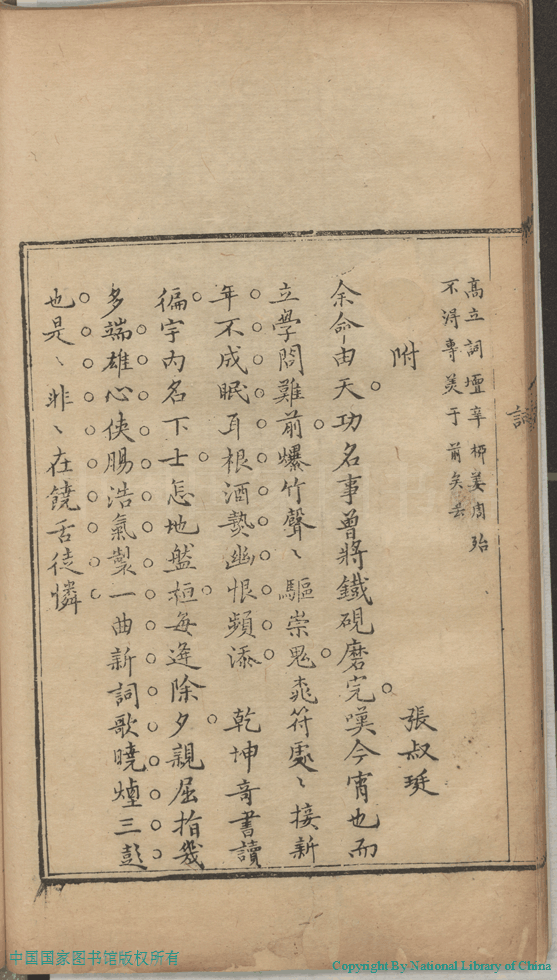 高立詞壇辛柳姜周殆
不淂專美于前矣
附
張叔珽
余命由天功名事曾將鐵硯磨完嘆今宵也而
立學問難前爆竹聲〻驅祟鬼桃符處〻接新
年不成眠耳根酒熱幽恨頻添　乾坤奇書讀
徧宇內名下士怎地盤桓每逢除夕親屈指幾
多端雄心俠腸浩氣製一曲新詞歌曉煙三彭
也是〻非〻在饒舌徒憐
詞
中国国家图书馆版权所有
Copyright By National Library of China